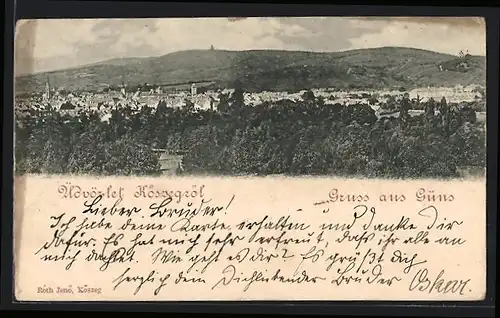 Üdvözlet Kőszegről
Gruss aus Güns
Lieber Bruder!
Ich habe deine Karte erhalten und Danke Dir
dafür. Es hat mich sehr erfreut, daß ihr alle an
mich dachtet. Wie geht es dir? Es grüßt dich
herzlich dein Dichliebender Bruder Oskar.
Róth Jenő, Kőszeg